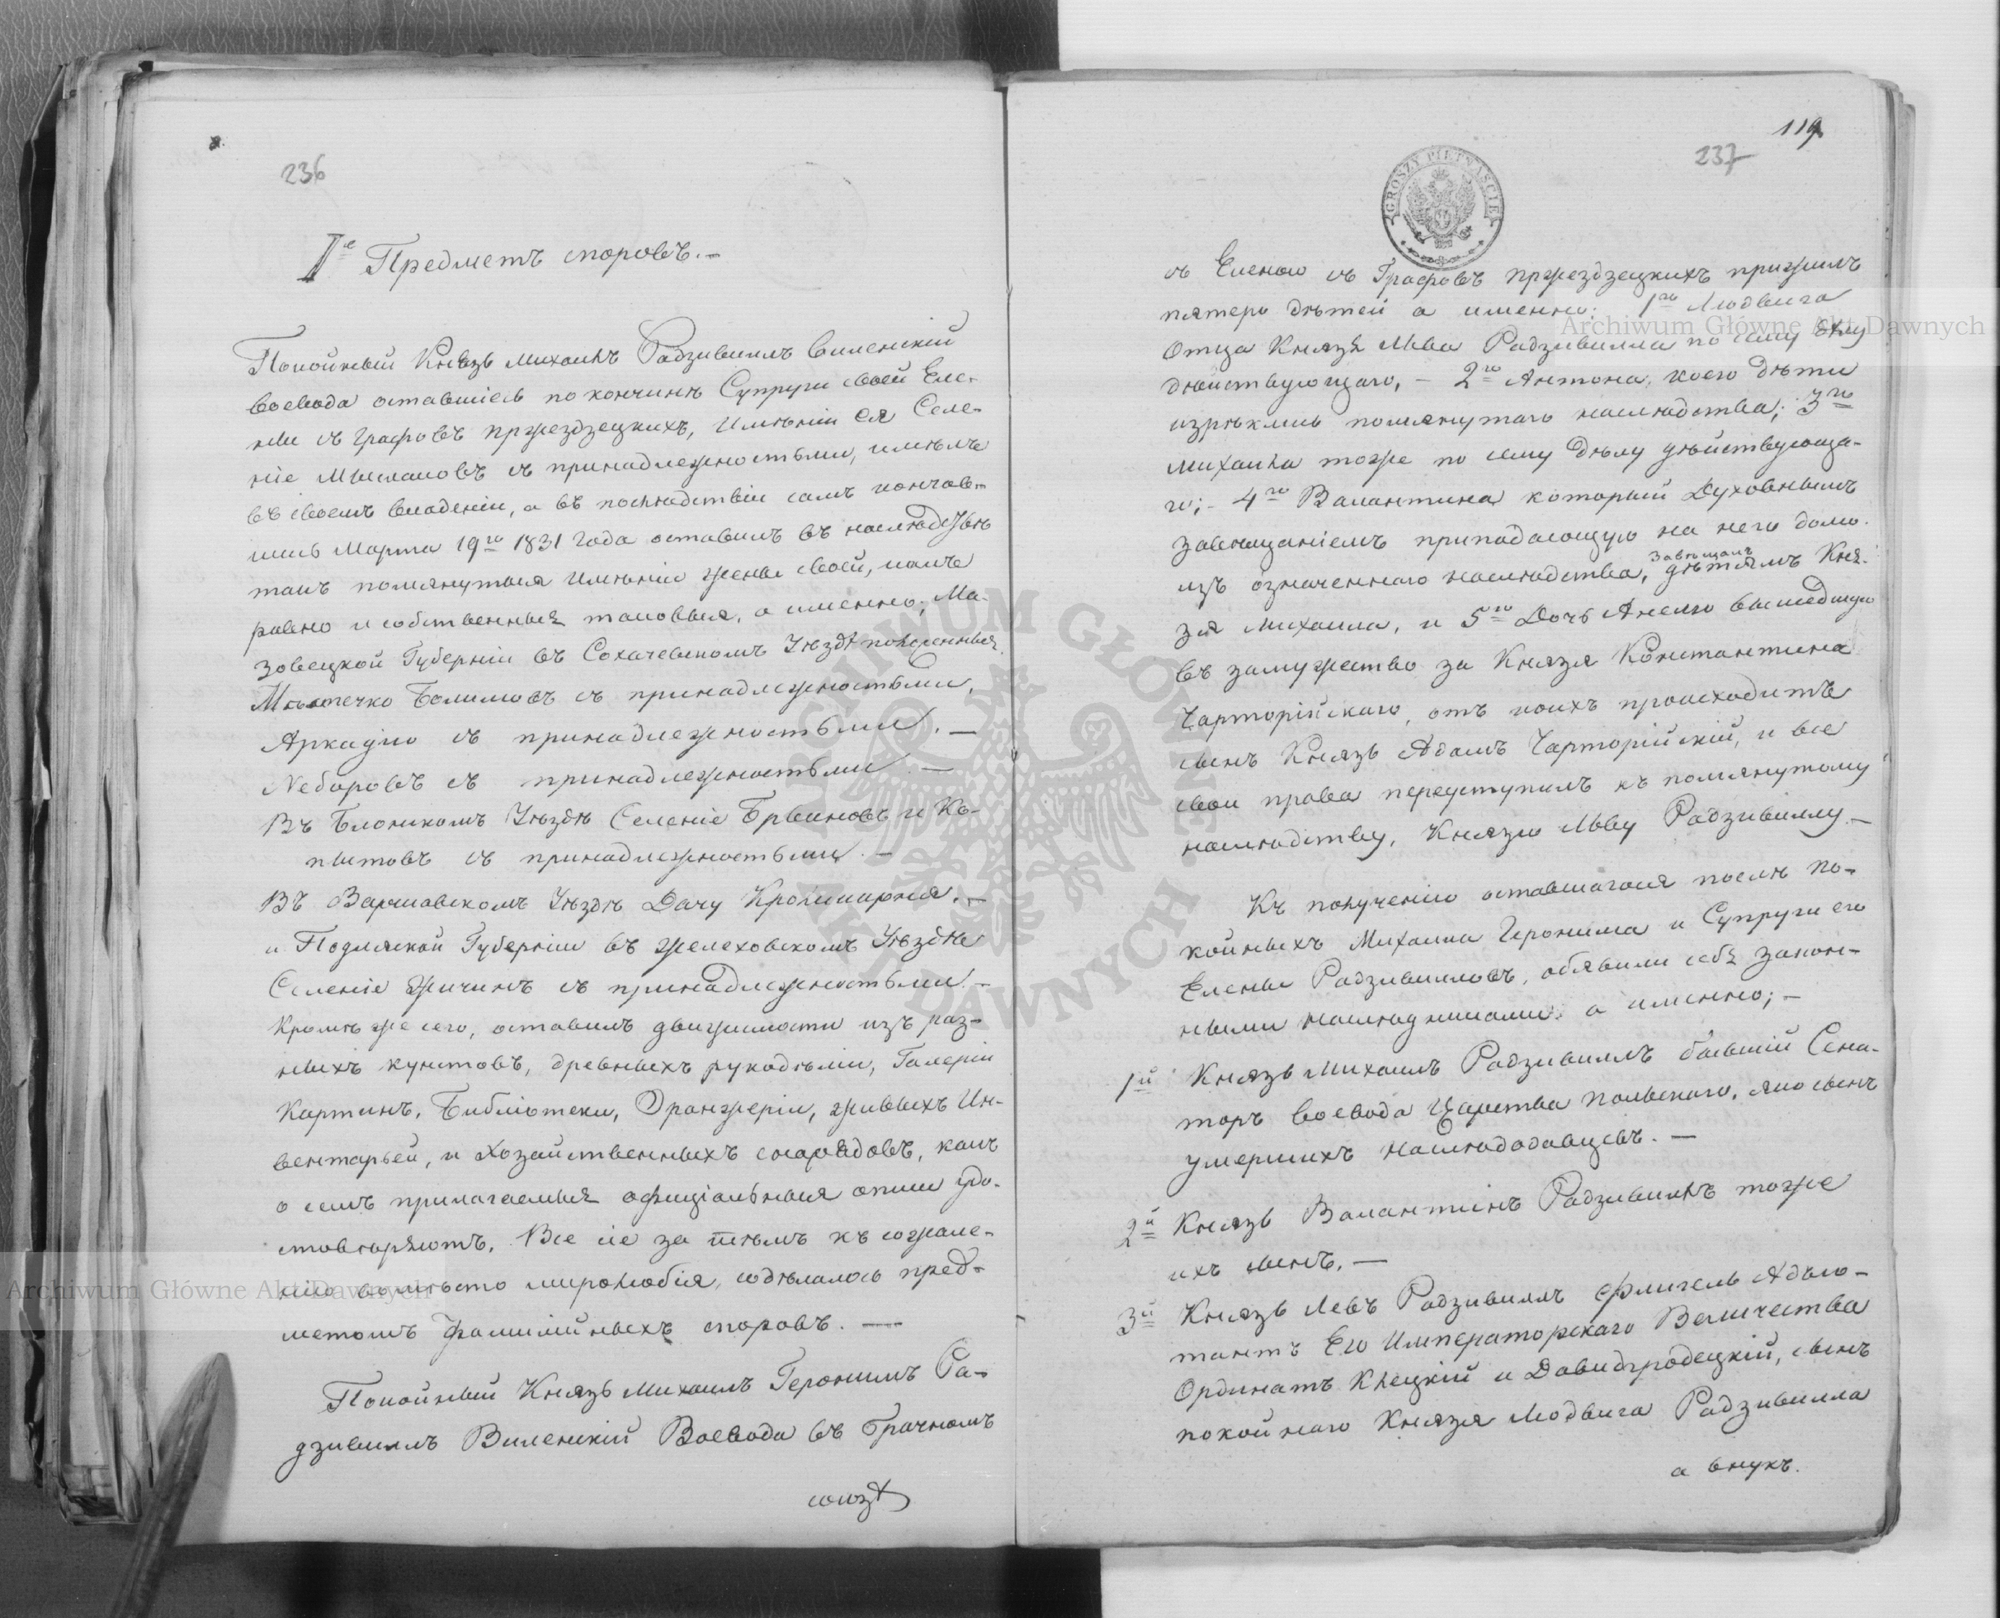 236
Iе Предметъ споровъ.—
Покойный Князь Михаилъ Радзивиллъ Виленскій
Воевода оставшіесь по кончинѣ Супруги своей Еле-
ны съ Графовъ Пржездзецкихъ, имѣніи ея Селе-
ніе Мысловъ съ принадлежностьми, имѣлъ
въ своемъ владеніи, а въ послѣдствіи самъ кончав-
шись Марта 19го 1831 года оставилъ въ наслѣдствѣ
такъ помянутыя имѣніи жены своей, какъ
равно и собственныя таковыя, а именно: Ма-
зовецкой Губерніи въ Сохачевскомъ Уѣздѣ положенныя
Мѣстечко Болимовъ съ принадлежностьми,
Аркадію съ принадлежностьми. —
Неборовъ съ принадлежностьми. —
Въ Блонскомъ Уѣздѣ Селеніе Брвиновъ и Ко-
пытовъ съ принадлежностьми. —
Въ Варшавскомъ Уѣздѣ Дачу Крольикарня. —
и Подляской Губерніи въ Желеховскомъ Уѣздѣ
Селеніе Жичинъ съ принадлежностьми. —
Кромѣ же сего, оставилъ движимости изъ раз-
ныхъ кунстовъ, древныхъ рукодѣліи, Галеріи
Картинъ, Библіотеки, Оранжеріи, живыхъ Ин-
вентарьей, и Хозайственныхъ снарядовъ, какъ
о семъ прилагаемыя офиціальныя описи удо-
стовѣряютъ. Все сіе за тѣмъ къ сожале-
нію вомѣсто миролюбія, содѣлалось пред-
метомъ фамилійныхъ споровъ. —
Покойный Князь Михаилъ Геронимъ Ра-
дзивиллъ Виленскій Воевода въ Брачномъ
союзѣ
119
237
GROSZY PIĘTNAŚCIE
съ Еленою съ Графовъ Пржездзецкихъ прижилъ
пятеро дѣтей а именно: 1го Людвига
Отца Князя Льва Радзивилла по сему дѣлу
дѣйствующаго, — 2го Антона, коего дѣти
изрѣклись помянутаго наслѣдства; 3го
Михаила тоже по сему дѣлу дѣйствующа-
го; — 4го Валантина который Духовнымъ
Завѣщаніемъ припадающую на него долю
изъ означеннаго наслѣдства, завѣщалъ дѣтямъ Кня-
зя Михаила, и 5го Дочь Анелю вышедшую
въ замужество за Князя Константина
Чарторійскаго, отъ коихъ происходитъ
сынъ Князь Адамъ Чарторійскій, и все
свои права переуступилъ къ помянутому
наслѣдству, Князю Льву Радзивиллу. —
Къ полученію оставшагося послѣ по-
койныхъ Михаила Геронима и Супруги его
Елены Радзивилловъ, обявили себя закон-
ными наслѣдниками: а именно; —
1й Князь Михаилъ Радзивиллъ бывшій Сена-
торъ Воевода Царства Польскаго, яко сынъ
умершихъ наслѣдодавцевъ. —
2й Князь Валантинъ Радзивиллъ тоже
ихъ сынъ. —
3й Князь Левъ Радзивиллъ Флигель Адъю-
тантъ Его Императорскаго Величества
Ординатъ Клецкій и Давидгродецкій, сынъ
покойнаго Князя Людвига Радзивилла
а внукъ.
Archiwum Główne Akt Dawnych
Archiwum Główne Akt Dawnych
ARCHIWUM GŁÓWNE AKT DAWNYCH